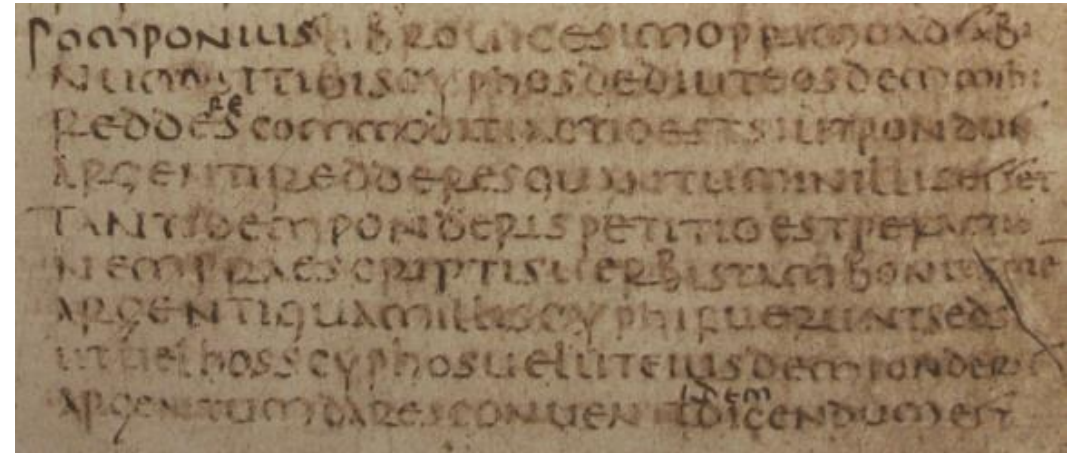 POMPONIUSLIBROUICESIMOPRIMOADSABI
NUMSITIBISCYPHOSDEDIUTEOSDEMMIHI
REDDEreSCOMMODATIACTIOESTSIUTPONDUS
ARGENTIREDDERESQUANTUMINILLISESSET
TANTIDEMPONDERISPETITIOESTPERACTIO
NEMPRAESCRIPTISUERBISTAMBONITAME
ARGENTIQUAMILLISCYPHIFUERUNTSEDSI
UTUELHOSSCYPHOSUELUTEIUSDEMPONDERIS
ARGENTUMDARESCONUENITidemDICENDUMEST